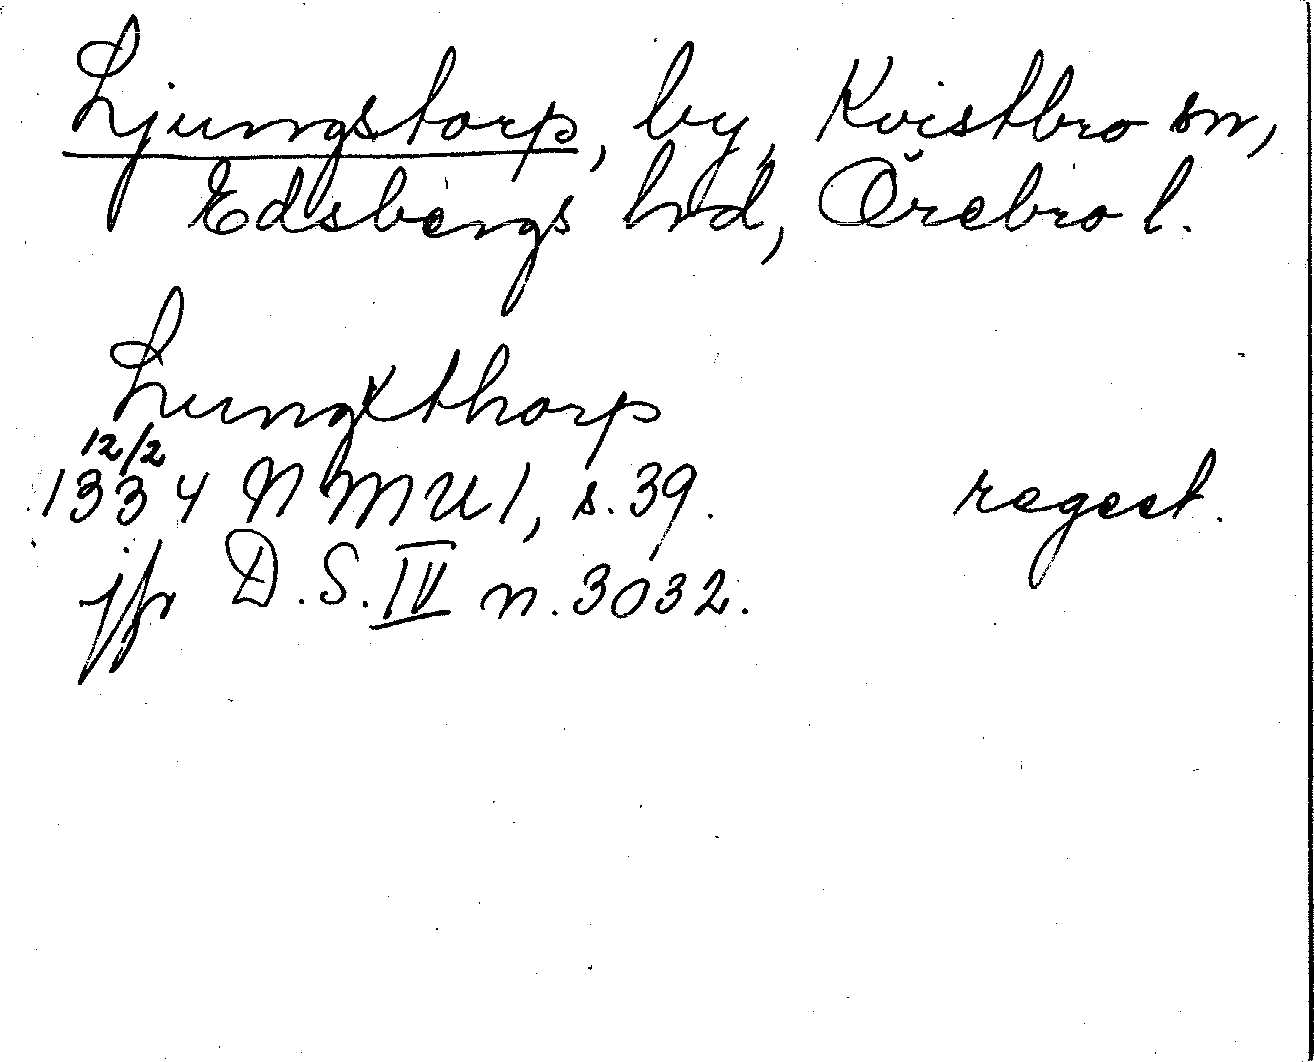 Ljungstorp, by, Kvistbro sn,
Edsbergs hrd, Örebro l.
Lungxthorp
12/2
1334 NMU 1, s. 39. regest.
jfr D.S. IV n. 3032.